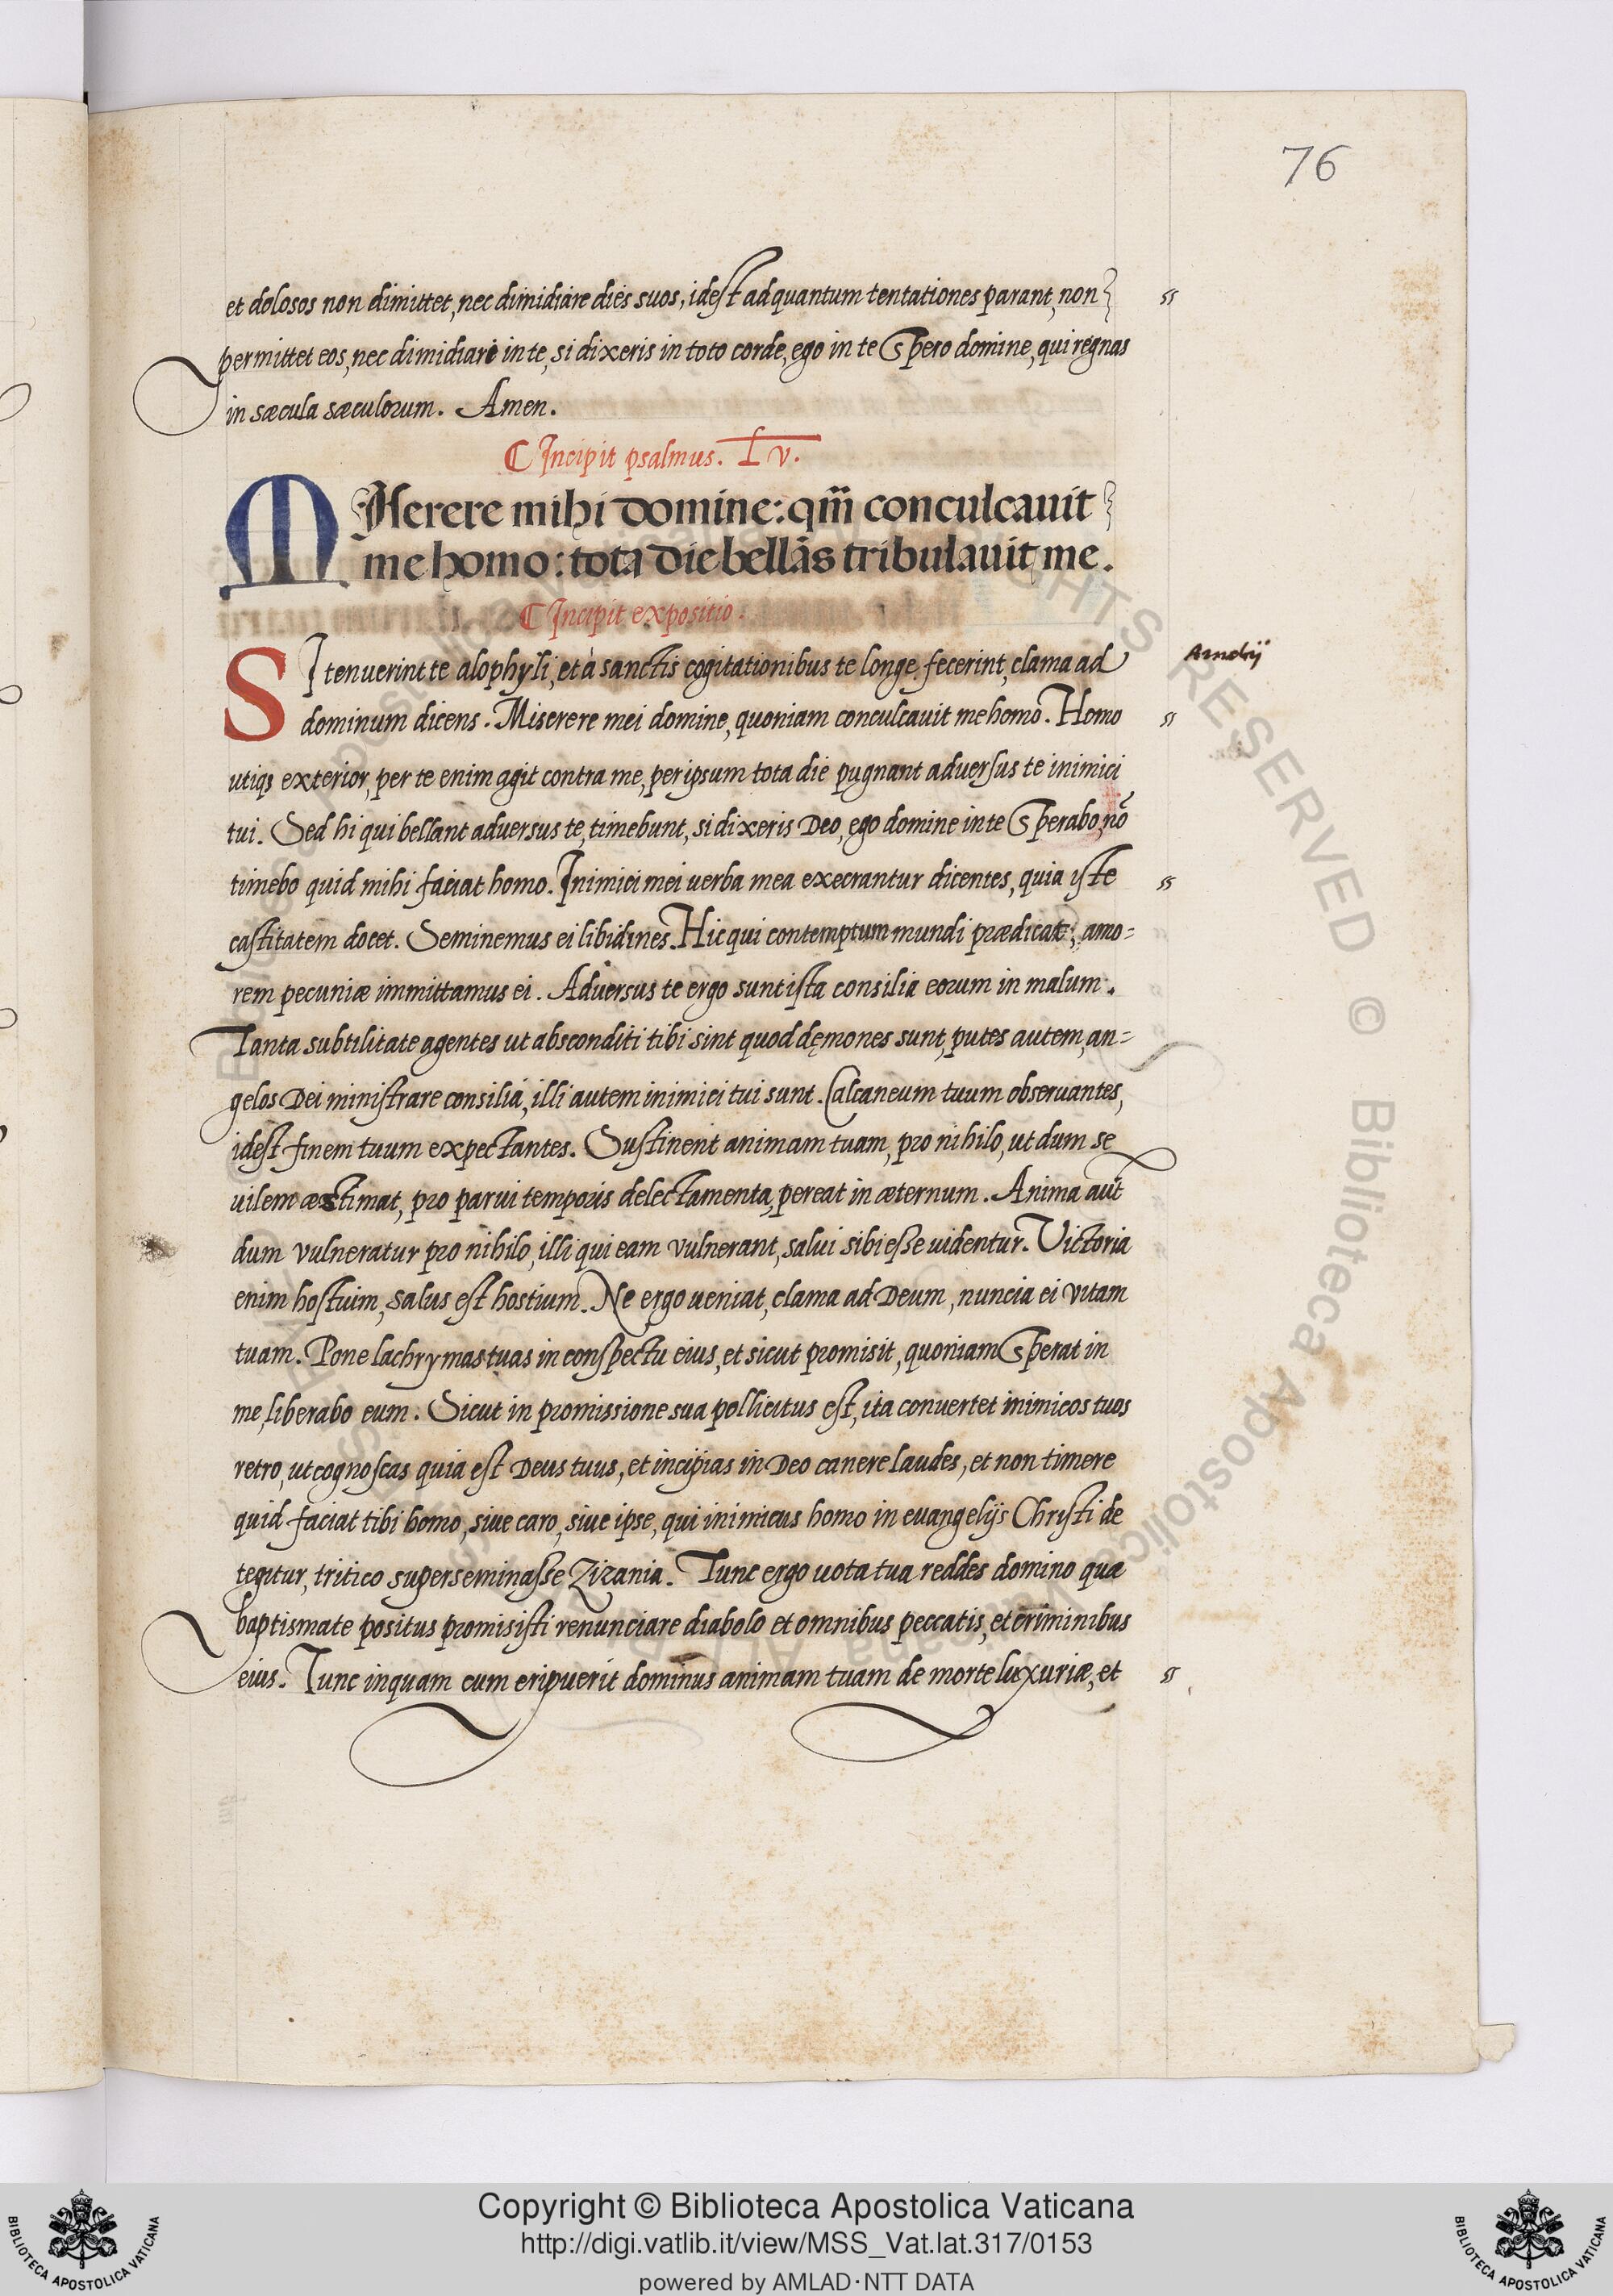 76
et dolosos non dimittet, nec dimidiare dies suos, idest adquantum tentationes parant, non
permittet eos, nec dimidiare in te, si dixeris in toto corde, ego in te Spero domine, qui regnas
in sæcula sæculorum. Amen.
Incipit psalmus. Lv.
MIserere mihi domine: qm̃ conculcauit
me homo: tota die bellãs tribulauit me.
Incipit expositio.
SI tenuerint te alophyli, et à sanctis cogitationibus te longe fecerint, clama ad
dominum dicens. Miserere mei domine, quoniam conculcauit me homo. Homo
utiqs exterior, per te enim agit contra me, per ipsum tota die pugnant aduersus te inimici
tui. Sed hi qui bellant aduersus te, timebunt, si dixeris Deo, ego domine in te Sperabo, nõ
timebo quid mihi faciat homo. Inimici mei uerba mea execrantur dicentes, quia yste
castitatem docet. Seminemus ei libidines. Hic qui contemptum mundi prædicat, amo=
rem pecuniæ immittamus ei. Aduersus te ergo sunt ista consilia eorum in malum.
Tanta subtilitate agentes ut absconditi tibi sint quod dęmones sunt, putes autem, an=
gelos Dei ministrare consilia, illi autem inimici tui sunt. Calcaneum tuum obseruantes,
idest finem tuum expectantes. Sustinent animam tuam, pro nihilo, ut dum se
uilem æstimat, pro parui temporis delectamenta, pereat in æternum. Anima aut̃
dum vulneratur pro nihilo, illi qui eam vulnerant, salui sibi esse uidentur. Victoria
enim hostium, salus est hostium. Ne ergo ueniat, clama ad Deum, nuncia ei vitam
tuam. Pone lachrymas tuas in conspectu eius, et sicut promisit, quoniam Sperat in
me, liberabo eum. Sicut in promissione sua pollicitus est, ita conuertet inimicos tuos
retro, ut cognoscas quia est Deus tuus, et incipias in Deo canere laudes, et non timere
quid faciat tibi homo, siue caro, siue ipse, qui inimicus homo in euangelijs Christi de
tegitur, tritico superseminasse Zizania. Tunc ergo uota tua reddes domino quæ
baptismate positus promisisti renunciare diabolo et omnibus peccatis, et criminibus
eius. Tunc inquam cum eripuerit dominus animam tuam de morte luxuriæ, et
Copyright © Biblioteca Apostolica Vaticana
http://digi.vatlib.it/view/MSS_Vat.lat.317/0153
powered by AMLAD·NTT DATA
BIBLIOTECA APOSTOLICA VATICANA
BIBLIOTECA APOSTOLICA VATICANA